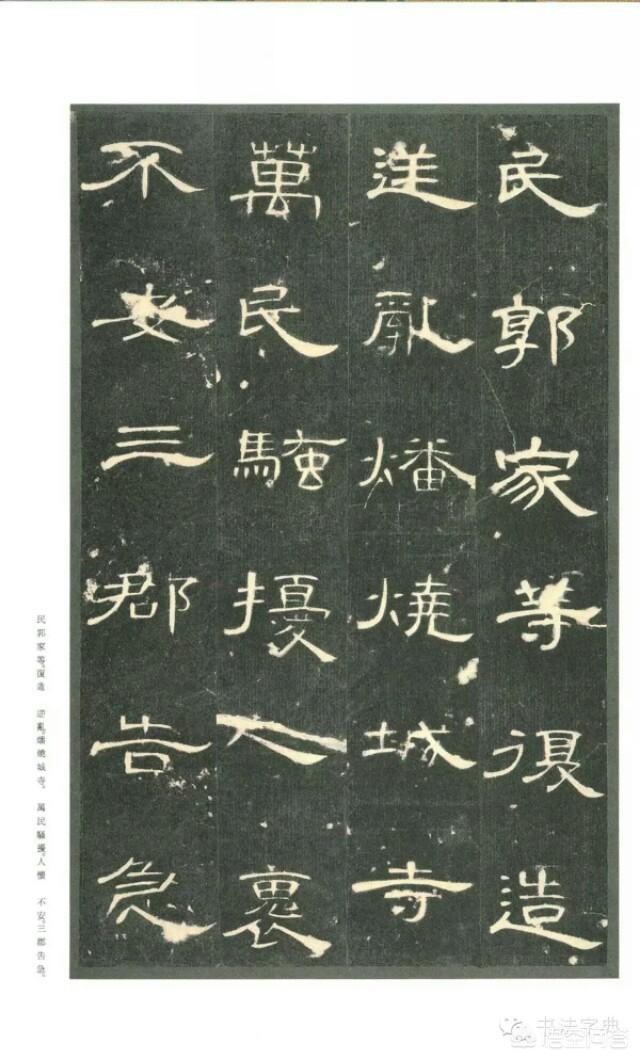 民郭家等復造
逆亂燔燒城寺
萬民騷擾人裹
不安三郡告急
民郭家等。復造　逆亂。燔燒城寺。　萬民騷擾。人懷　不安。三郡告急。
书法字典
悟空问答